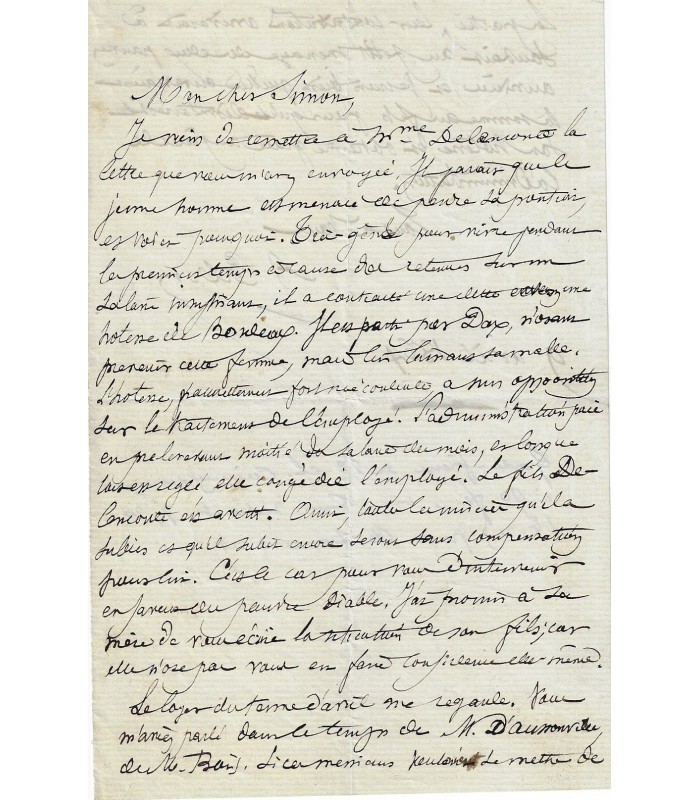 Mon cher Simon,
Je viens de remettre à Mme Delancoute la
lettre que vous m'avez envoyé. Il paraît que le
jeune homme est menacé de perdre sa position,
et voici pourquoi. Très gêné pour vivre pendant
les premiers temps à cause des retenues sur un
salaire insuffisant, il a contracté une dette envers une
hotesse de Bordeaux. Il est parti par Dax, n'osant
prévenir cette femme, mais lui laissant sa malle.
L'hotesse, fort mécontente a mis opposition
sur le traitement de l'employé. L'administration paie
en prelevant moitié du salaire du mois, et lorsque
tout est réglé elle congédie l'employé. Le fils De-
lancoute est averti. Ainsi, toute la misère qu'il a
subies et qu'il subit encore seront sans compensation
pour lui. C'est le cas pour vous d'intervenir
en faveur du pauvre diable. J'ai promis à sa
mère de vous écrire la situation de son fils, car
elle n'ose pas vous en faire confidence elle-même.
Le loyer du terme d'avril me regarde. Vous
m'aviez parlé dans le temps de M. D'aunonville,
de M. Si ces messieurs voulaient se mettre de